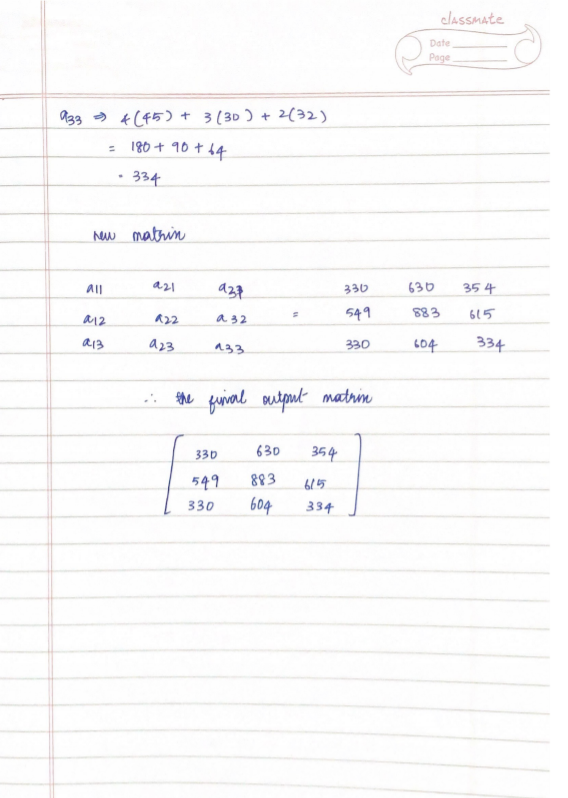 classmate
Date
Page
a33 ⇒ 4(45) + 3(30) + 2(32)
= 180 + 90 + 64
= 334
new matrix
a11 a21 a31 330 630 354
a12 a22 a32 = 549 883 615
a13 a23 a33 330 604 334
∴ the final output matrix
330 630 354
549 883 615
330 604 334